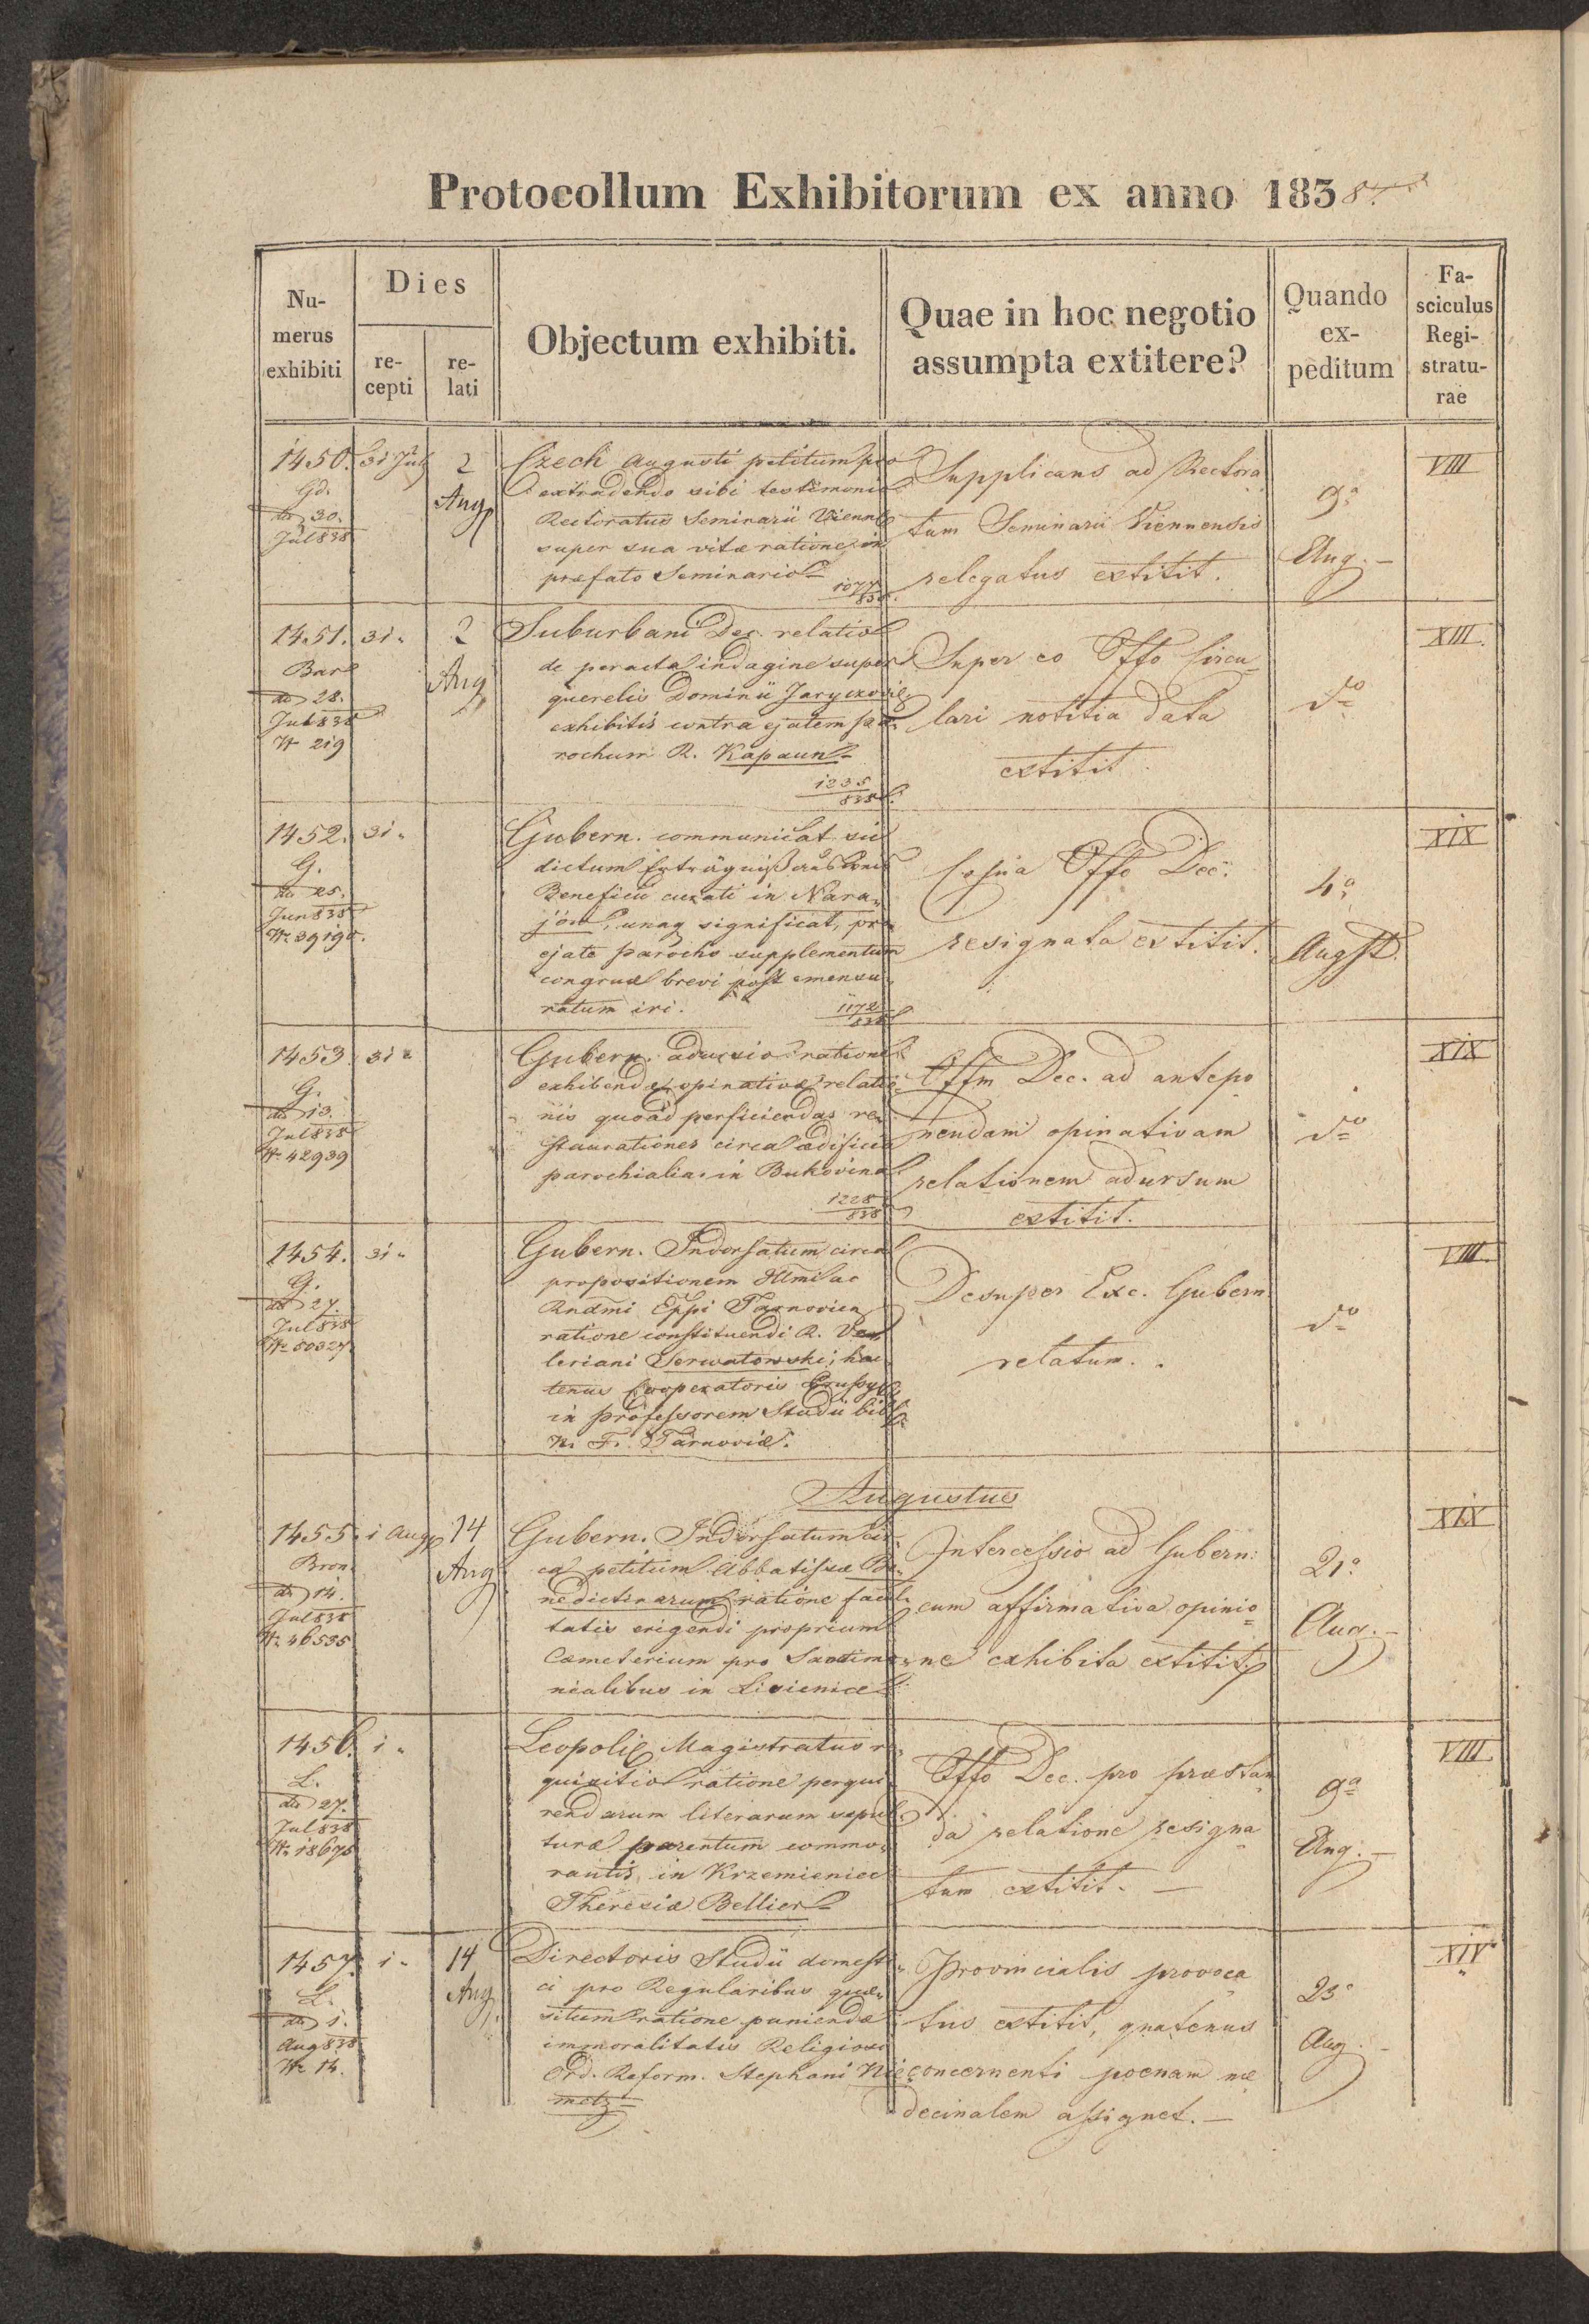 Protocollum Exhibitorum ex anno 1838.
Nu-
merus
exhibiti
Dies
re-
cepti
re-
lati
Objectum exhibiti.
Quae in hoc negotio
assumpta extitere?
Quando
ex-
peditum
Fa-
sciculus
Regi-
stratu-
rae
1450.
Gd.
dto 30.
Jul 838
31 July
2
Aug
Czech Augusti petitum pro
extradendo sibi testimonio
Rectoratus Seminarii Vienn
super sua vitæ ratione in
præfato Seminario
1077
838.
Supplicans ad Rectora
tum Seminarii Viennensis
relegatus extitit.
9a
Aug.
VIII
1451.
Bar
dto 28.
Jul 838
Nr 219
31.
2
Aug
Suburbani Dec. relatio
de peracta indagine super
querelis Dominii Jaryczovie
exhibitis contra ejatem pa
rochum R. Kapaun
1235
838.
Super eo Offo Circu
lari notitia data
extitit.
do
XIII.
1452.
G.
dto 25.
Jun 838
Nr. 39190.
31.
Gubern. communicat
dictum Erträgniß
Beneficii curati in Nara
jów, unaq significat, pro
ejate parocho supplementum
congruæ brevi post emensu
ratum iri.
1172
838
Copia Offo Dec.
resignata extitit.
4a
Augst.
XIX
1453
G.
dto 13.
Jul 838
Nr. 42939
31.
Gubern. ratione
exhibendæ opinativæ relatio
nis quoad perficiendas re
staurationes circa ædificia
parochialia in Bukovina
1228
838
Offm Dec. ad antepo
nendam opinativam
relationem adursum
extitit.
do
XIX
1454.
G.
dto 27.
Jul 838
Nr. 50327
31.
Gubern. Indorsatum circa
propositionem Illmi ac
Rndmi Eppi Tarnovien
ratione constituendi R. Va
leriani Serwatowski, hac
tenus Cooperatoris
in professorem Studii bib
N. F. Tarnoviæ.
Desuper Exc. Gubern
relatum.
do
VIII.
Augustus
1455.
Bron.
dto 14.
Jul 838
Nr. 46535
1 Aug
14
Aug
Gubern. Indorsatum cir
ca petitum Abbatissæ Be
nedictinarum ratione facul
tatis erigendi proprium
Cæmeterium pro Sanctimo
nialibus in Lisienice
Intercessio ad Gubern:
cum affirmativa opinio
ne exhibita extitit.
21a
Aug.
XIX
1456.
L.
dto 27.
Jul 838
Nr. 18675
1.
Leopolis Magistratus re
quisitio ratione perqui
rendarum literarum sepul
turæ parentum commo
rantis in Krzemieniec
Theresiæ Bellier
Offo Dec. pro præstan
da relatione resigna
tum extitit.
9a
Aug.
VIII.
1457.
L.
dto 1.
Aug 838
Nr. 14.
1.
14
Aug.
Directoris Studii domesti
ci pro Regularibus quæ
situm ratione puniendæ
immoralitatis Religiosi
Ord. Reform. Stephani Nie
metz
Provincialis provoca
tus extitit, quatenus
concernenti poenam me
decinalem assignet.
23a
Aug.
XIV